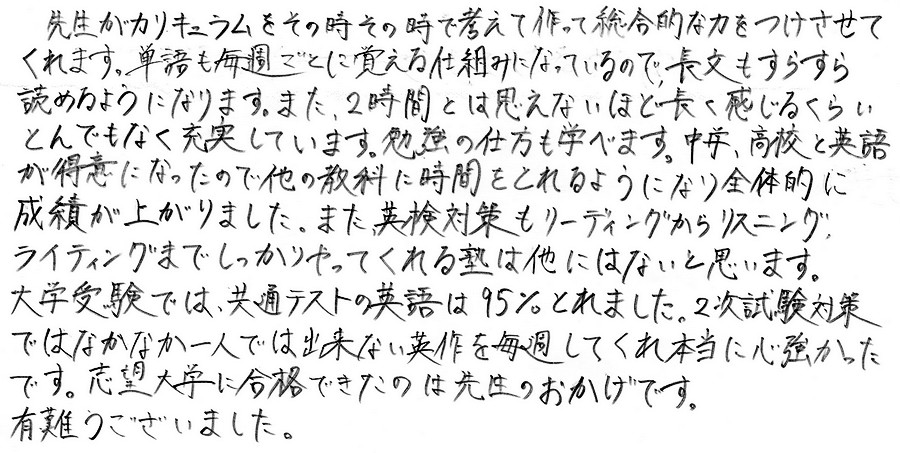 先生がカリキュラムをその時その時で考えて作って総合的な力をつけさせて
くれます。単語も毎週ごとに覚える仕組みになっているので、長文もすらすら
読めるようになります。また、2時間とは思えないほど、長く感じるくらい
とんでもなく充実しています。勉強の仕方も学べます。中学、高校と英語
が得意になったので他の教科に時間をとれるようになり全体的に
成績が上がりました。また、英検対策もリーディングからリスニング、
ライティングまでしっかりやってくれる塾は他にはないと思います。
大学受験では、共通テストの英語は95%とれました。2次試験対策
ではなかなか一人では出来ない英作を毎週してくれ本当に心強かった
です。志望大学に合格できたのは先生のおかげです。
有難うございました。